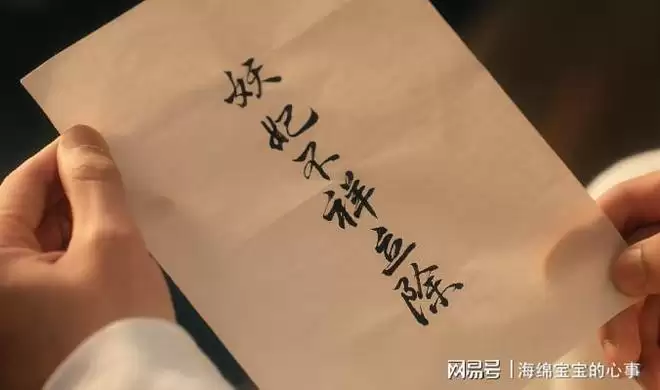 妖妃不祥立除
网易号 | 海绵宝宝的心事